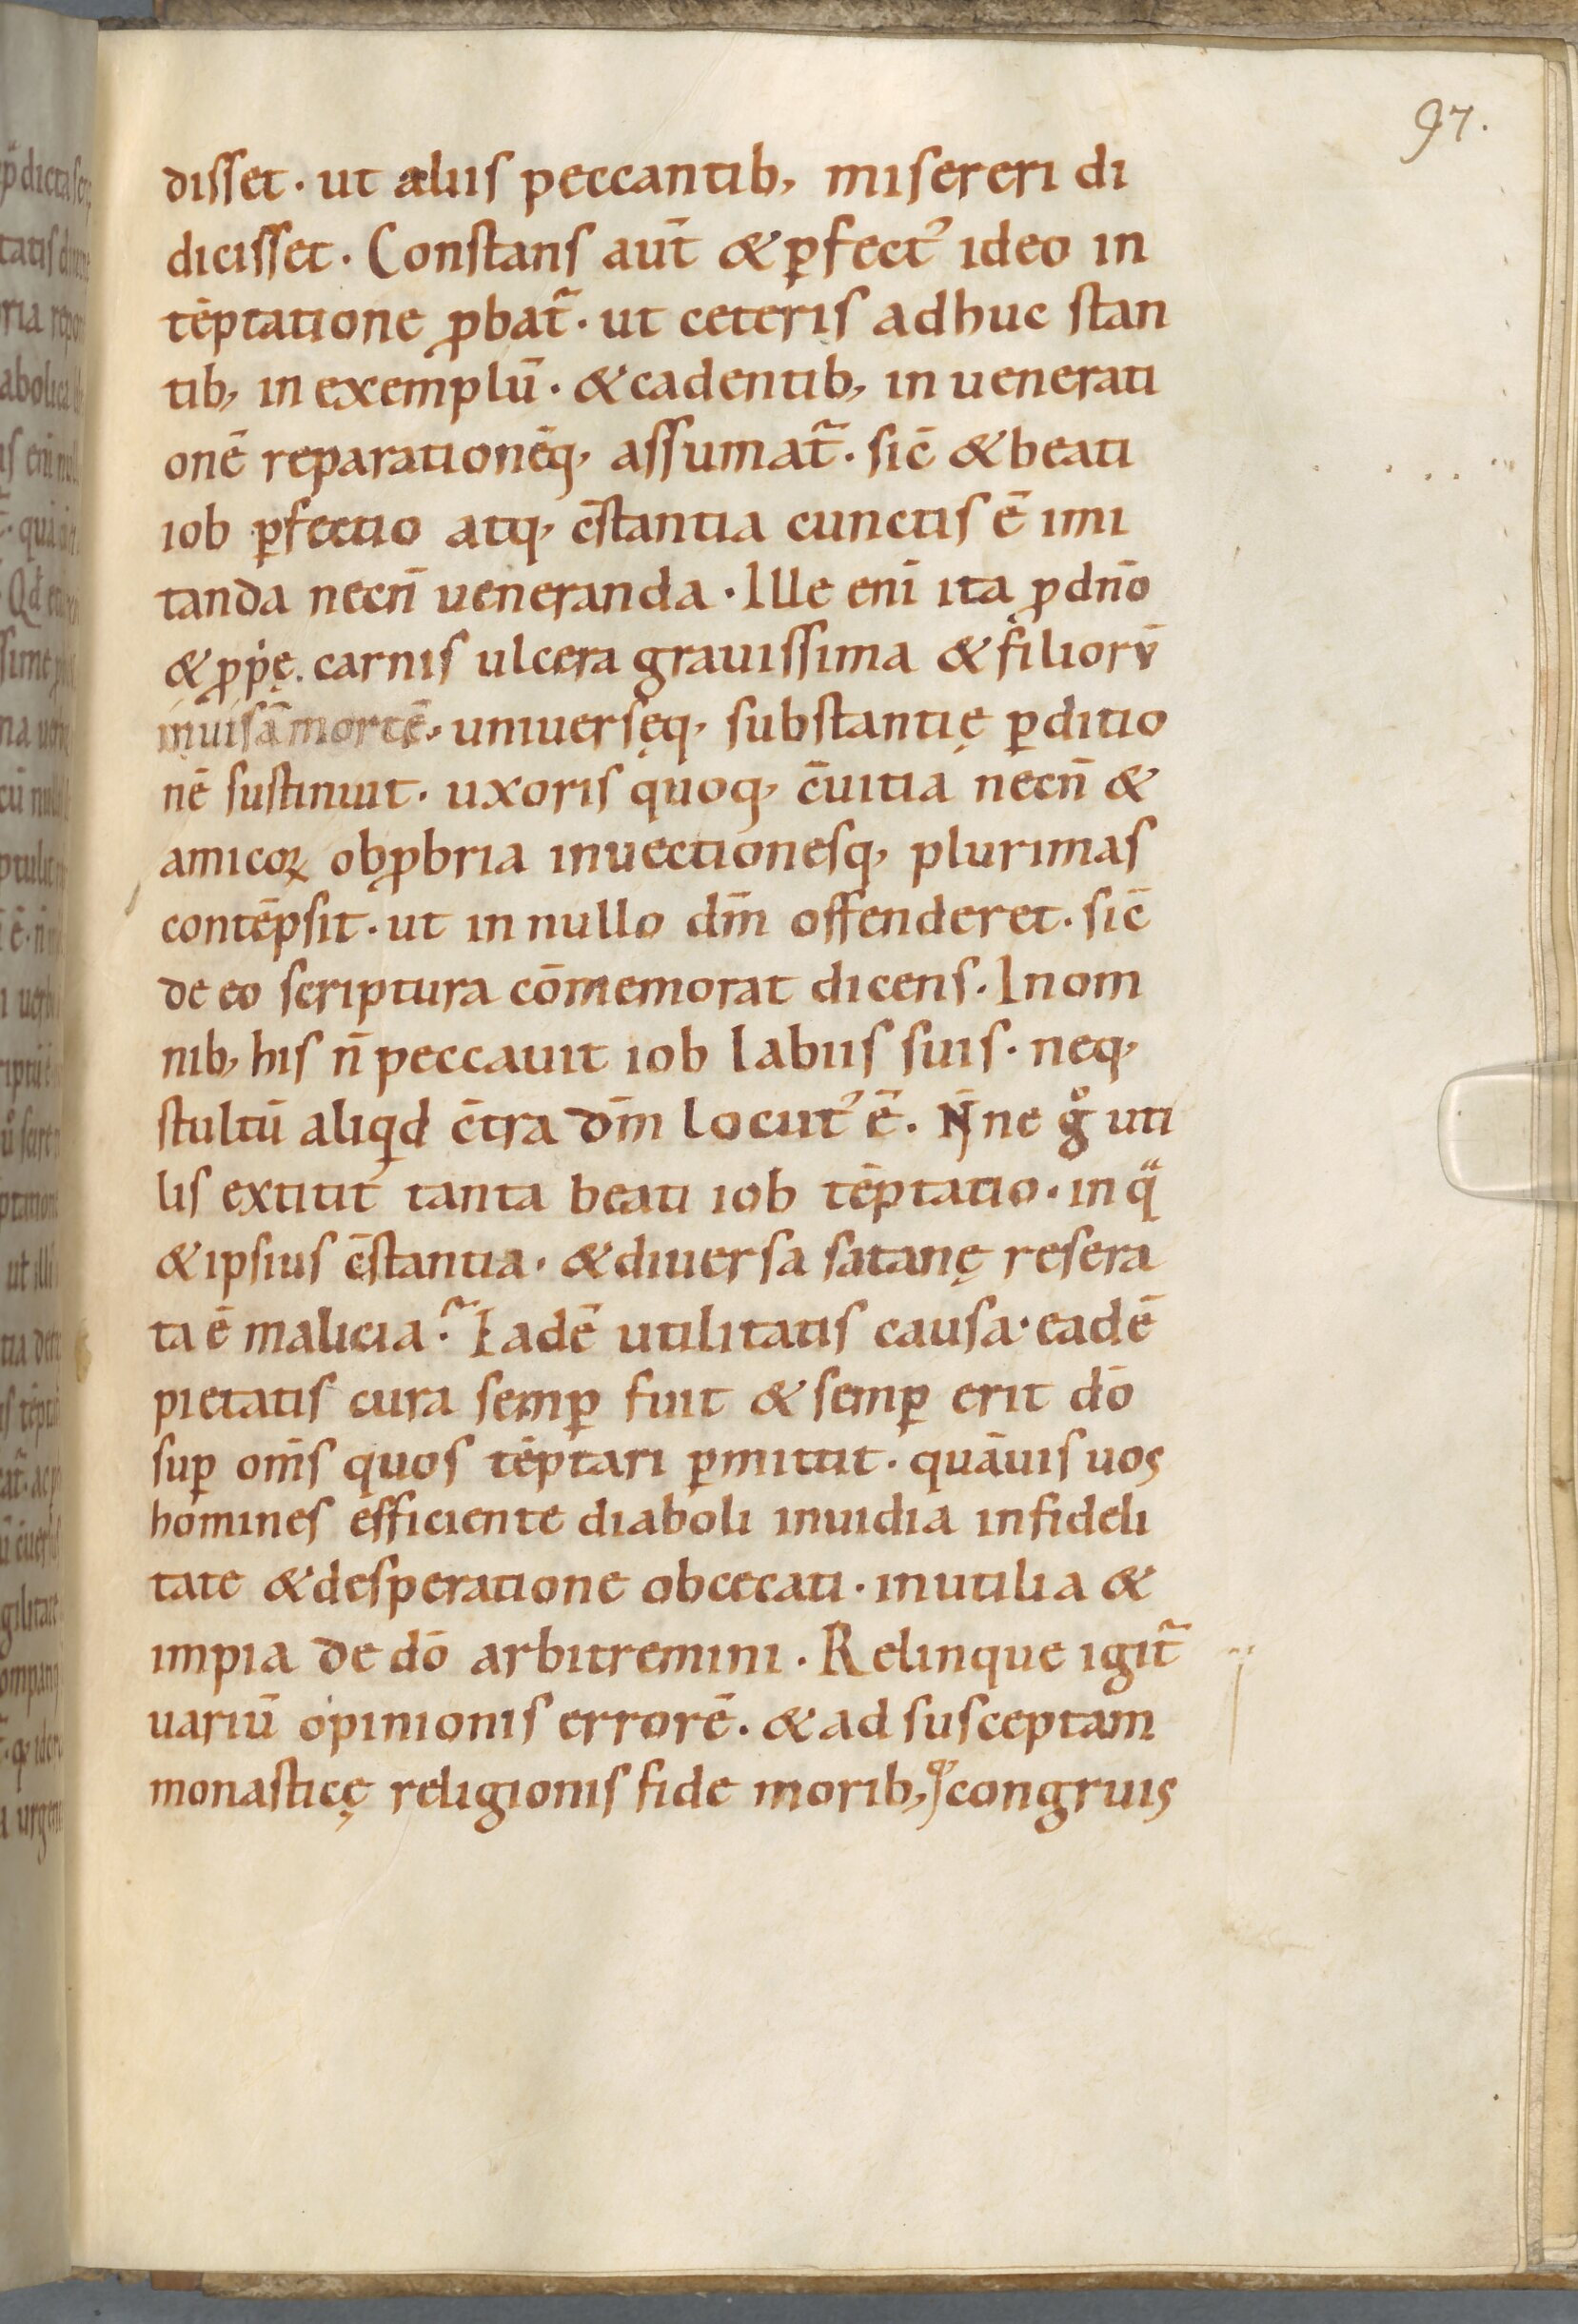 97.
disset · ut aliis peccantib, misereri di
dicisset · Constans aut̄ & ꝑfect᾽ ideo in
tēptatione ꝓbat᷑ · ut ceteris adhuc stan
tib, in exemplū · & cadentib, in uenerati
onē reparationēq, assumat᷑ · sic̄ & beati
iob ꝑfectio atq, c̄stantia cunctis ē imi
tanda necn̄ ueneranda · Ille eni̅ ita ꝓ dn̄o
& ꝓpę. carnis ulcera grauissima & filiorū
inuisā mortē · uniuersęq, substantię ꝑditio
nē sustinuit · uxoris quoq, c̄uitia necn̄ &
amicoꝝ obꝓbria inuectionesq, plurimas
contēpsit · ut in nullo dm̄ offenderet · sic̄
de eo scriptura cōmemorat dicens · In om
nib, his n̄ peccauit iob labiis suis · neq,
stultū aliqd c̄tra dm̄ locut᾽ ē · N̄ne gͦ uti
lis extitit tanta beati iob tēptatio · in qͣ
& ipsius c̄stantia · & diuersa satanę resera
ta ē malicia · Eadē utilitatis causa · eadē
pietatis cura semꝑ fuit & semꝑ erit dō
suꝑ om̄s quos tēptari ꝑmittit · quāuis uos
homines efficiente diaboli inuidia infideli
tate & desperatione obcecati · inutilia &
impia de dō arbitremini · Relinque igit᷑
uariū opinionis errorē · & ad susceptam
monasticę religionis fide morib, q, congruis